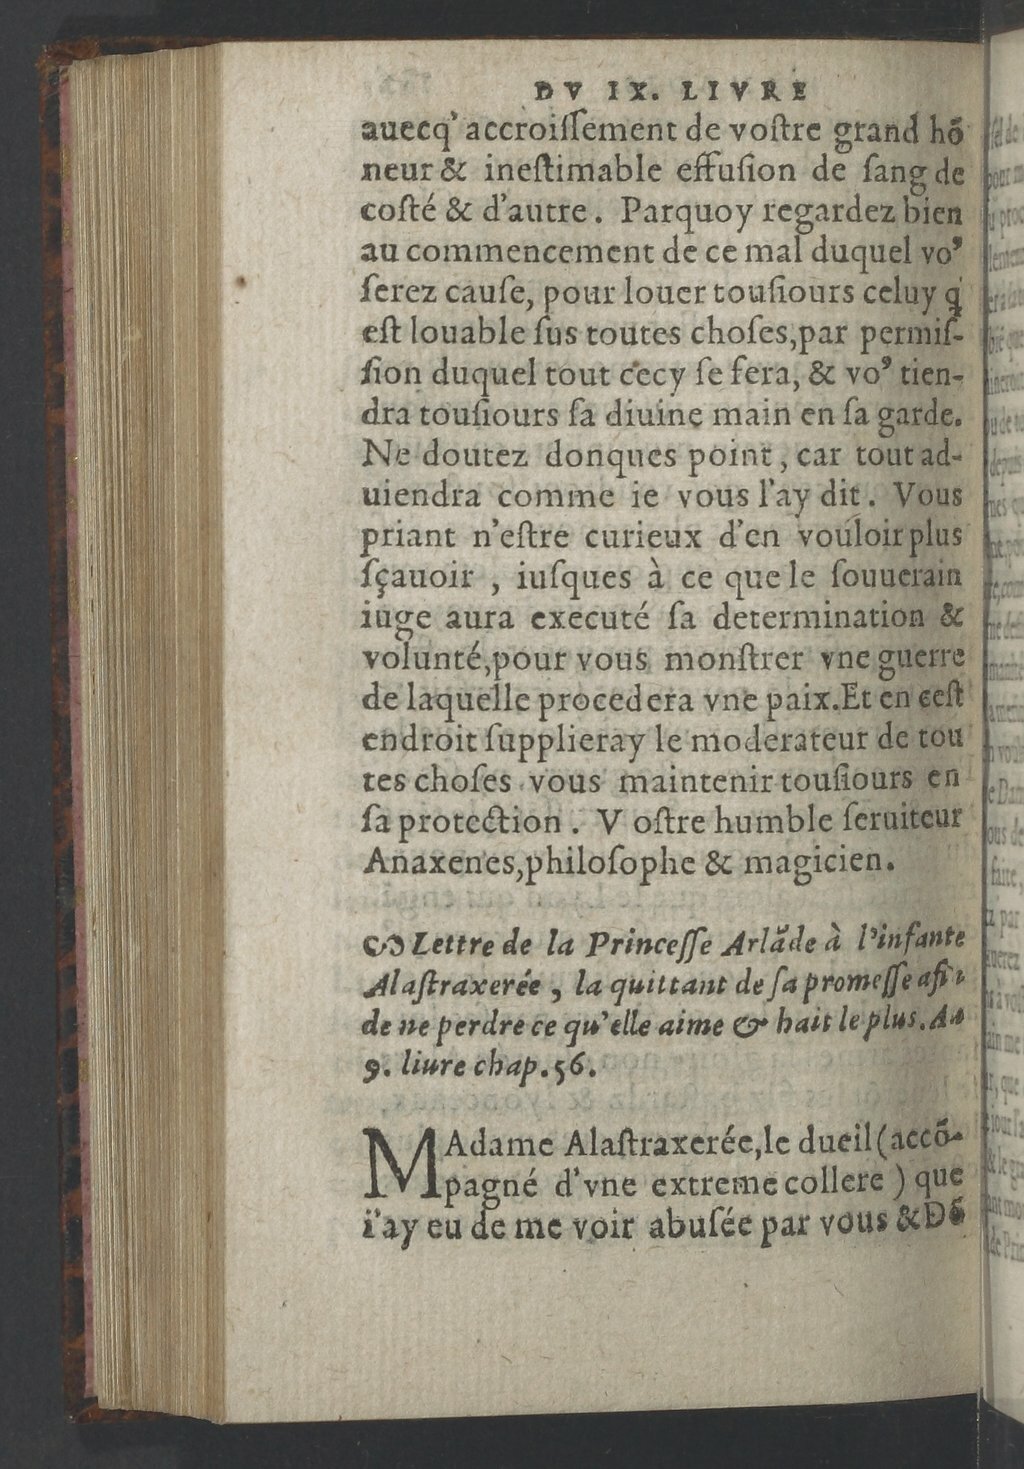 DV IX. LIVRE
auecq' accroiſſement de voſtre grand hõ
neur & ineſtimable effuſion de ſang de
coſté & d'autre. Parquoy regardez bien
au commencement de ce mal duquel voꝰ
ſerez cauſe, pour louer touſiours celuy q̃
eſt louable ſus toutes choſes, par permiſ-
ſion duquel tout cecy ſe fera, & voꝰ tien-
dra touſiours ſa diuine main en ſa garde.
Ne doutez donques point, car tout ad-
uiendra comme ie vous l'ay dit. Vous
priant n'eſtre curieux d'en vouloir plus
ſçauoir, iuſques à ce que le ſouuerain
iuge aura executé ſa determination &
volunté, pour vous monſtrer vne guerre
de laquelle procedera vne paix. Et en ceſt
endroit ſupplieray le moderateur de tou
tes choſes vous maintenir touſiours en
ſa protection. Voſtre humble ſeruiteur
Anaxenes, philoſophe & magicien.
Lettre de la Princeſſe Arlãde à l'infante
Alaſtraxerée, la quittant de ſa promeſſe afi
de ne perdre ce qu'elle aime & hait le plus. Au
9. liure chap. 56.
MAdame Alaſtraxerée, le dueil (accõ-
pagné d'vne extreme collere) que
i'ay eu de me voir abuſée par vous & Dõ